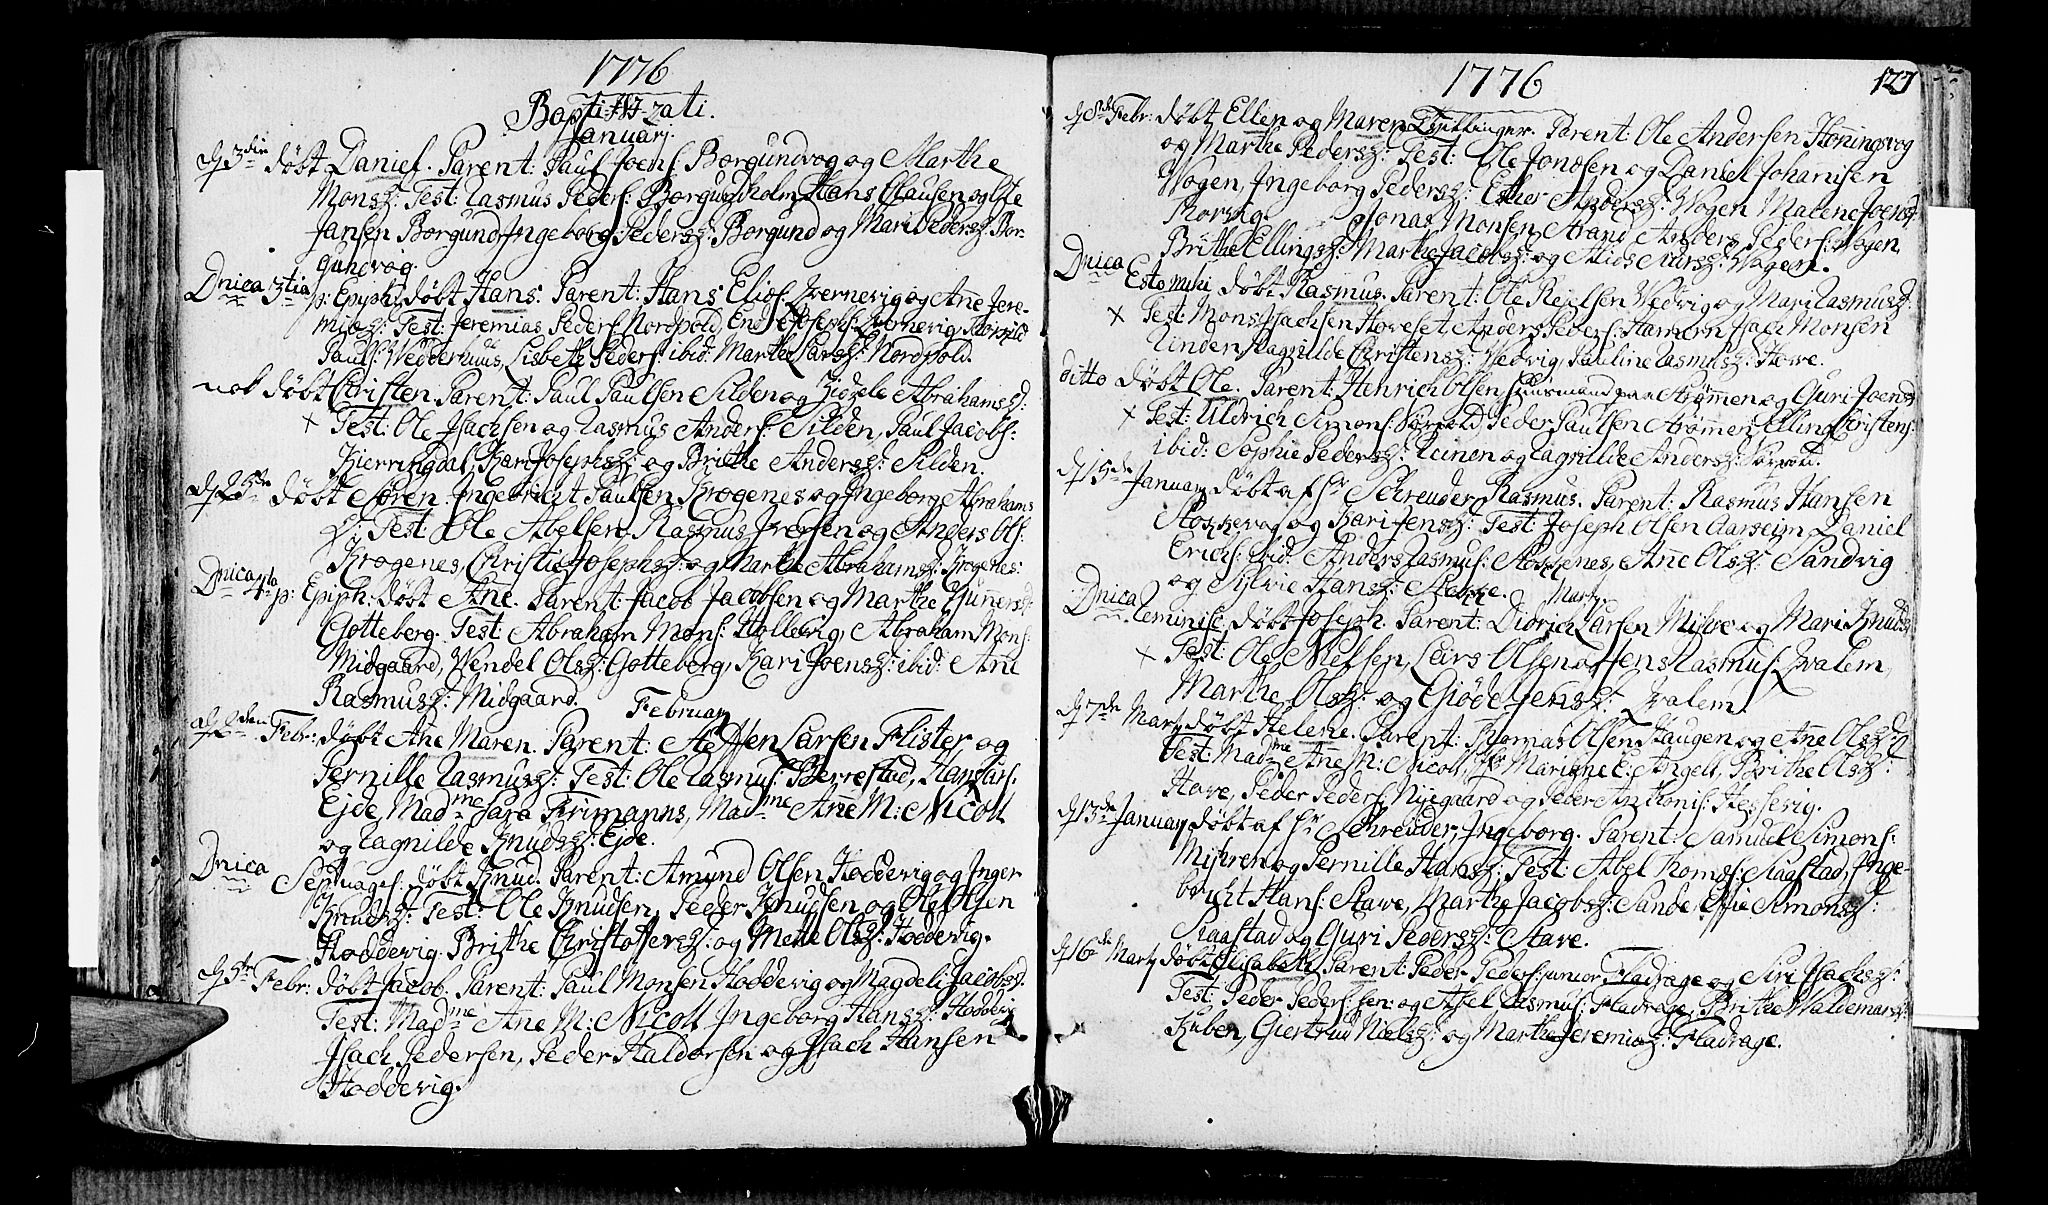 1776
Baptizati.
Januarj.
d 3die døbt Daniel. Parent: Paul Joens: Borgundvog og Marthe
Monsd: Test: Rasmus Peders: Borgundholm, Hans Clausen og Ole
Jansen Borgund, Ingeborg Pedersd: Borgund og Mari Pedersd: Bor-
gundvog.
Dnica 3tia p: Epiph: døbt Hans. Parent: Hans Elios: Qvernevig og Anne Jere-
miæd: Test: Jeremias Peders: Nordpold, Endre Josephs: Qvernevig,
Pauls: Wedderhuus, Lisbeth Peders: ibid: Marthe Larsd: Nordpold.
nok døbt Christen. Parent: Paul Paulsen Silden og Zidzele Abrahamsd:
+ Test: Ole Isachsen og Rasmus Anders: Silden, Paul Jacobs:
Kierringdal, Kari Josephsd: og Brithe Andersd: Silden.
d 25de døbt Søren. Ingebricht Paulsen Krogenes og Ingeborg Abrahams
D: Test: Ole Abelsen, Rasmus Iversen og Anders Ols:
Krogenes, Christie Josephsd: og Marthe Abrahamsd: Krogenes:
Dnica 4ta p: Epiph: døbt Ane. Parent: Jacob Jacobsen og Marthe Gunersd:
Gotteberg. Test: Abraham Mons: Hollevig, Abraham Mons:
Midgaard, Wendel Olsd: Gotteberg, Kari Joensd: ibid: Anne
Rasmusd: Midgaard.
Februarj
d 2den Febr: døbt Ane Maren. Parent: Steffen Larsen Flister og
Pernille Rasmusd: Test: Ole Rasmus: Berrestad, Hans Lars:
Ejde, Madme Sara Frimanns, Madme Anne M: Nicoll
og Ragnilde Knudsd: Ejde.
Dnica Septuages: døbt Knud. Parent: Amund Olsen Hoddevig og Inger
Knudsd: Test: Ole Knudsen, Peder Knudsen og Ole Olsen
Hoddevig. Brithe Christoffersd: og Mette Olsd: Hoddevig.
d 5te Febr: døbt Jacob. Parent: Paul Monsen Hoddevig og Magdeli Jacobsd.
Test: Madme Ane M: Nicoll Ingeborg Hansd: Hoddevig
Isach Pedersen, Peder Haldorsen og Isach Hansen
Hoddevig.
1776
127
d 8de Febr: døbt Ellen og Maren Tvillinger. Parent: Ole Andersen Honingsvog
og Marthe Pedersd: Test: Ole Jonosen og Daniel Johannsen
Wogen, Ingeborg Pedersd: Esther Andersd: Wogen Malene Joensd:
Jonas Monsen Strand Anders Peders: Wogen
Brithe Ellingsd: Marthe Jacobsd: og Wogen.
Dnica Esto mihi døbt Rasmus. Parent: Ole Wedvig og Mari Rasmusd:
+ Test: Mons Isachsen Hoveset, Anders Peders: Hamern, Isach Monsen
Linden, Ragnilde Christensd: Wedvig, Pauline Rasmusd: Howe.
ditto døbt Ole. Parent: Henrich Olsen Huusmand paa Strømen og Guri Joensd
+ Test: Uldrich Simons: Sørpold, Peder Paulsen Strømen, Elling Christens:
ibid: Sophie Pedersd: Leinen og Ragnilde Andersd: Sørpold.
d 15de Januarj døbt af Hr Schreuder Rasmus. Parent: Rasmus Hansen
Stokkevog og Kari Jensd: Test: Joseph Olsen Aarseim Daniel
Erichs: ibid: Anders Rasmus: Stokkenes, Anne Olsd: Sandvig
og Sylvie Hansd: Stokke. Martj.
Dnica Reminisc. døbt Joseph. Parent: Didrich Larsen Mishre og Mari Knudsd
+ Test: Ole Nielsen, Lars Olsen og Jens Rasmus: Qvalem,
Marthe Olsd: og Giøde Jensd: Qvalem.
d 7de Martj døbt Helene. Parent: Thomas Olsen Haugen og Ane Olsd:
Test: Madme Ane M: Nicoll, Marianne E: Angell, Brithe Olsd:
Hove, Peder Peders: Nyegaard og Peder Anthonis: Hessevig.
d 13de Januarj døbt af Hr Schreuder, Ingeborg. Parent: Samuel Simons:
Mishren og Pernille Hansd: Test: Abel Thoms: Raastad, Inge-
bricht Hans: Stave, Marthe Jacobsd: Sande, Simonsd:
Raastad og Guri Pedersd: Stave.
d 16de Martj døbt Elisabeth. Parent: Peder Peders: junior Fladrage og Siri Isachsd:
Test: Peder Peders: sen: og Axel Rasmus: Fladrage, Brithe Waldemarsd:
Kuben, Giertrud Nielsd: og Marthe Jeremiæd: Fladrage.